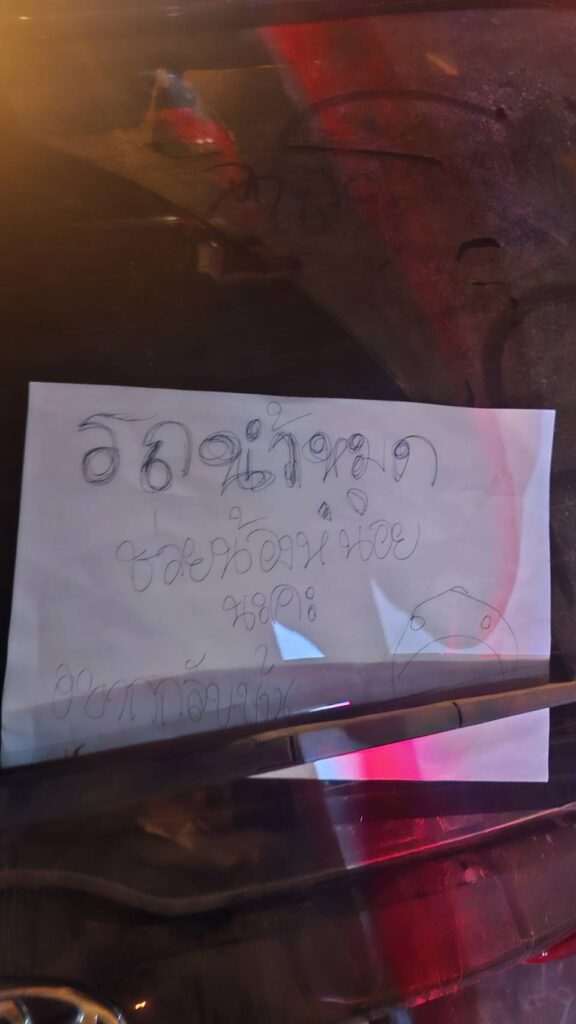 รถน้ำหมด
ช่วยน้องหน่อย
นะคะ
อยากกลับบ้าน